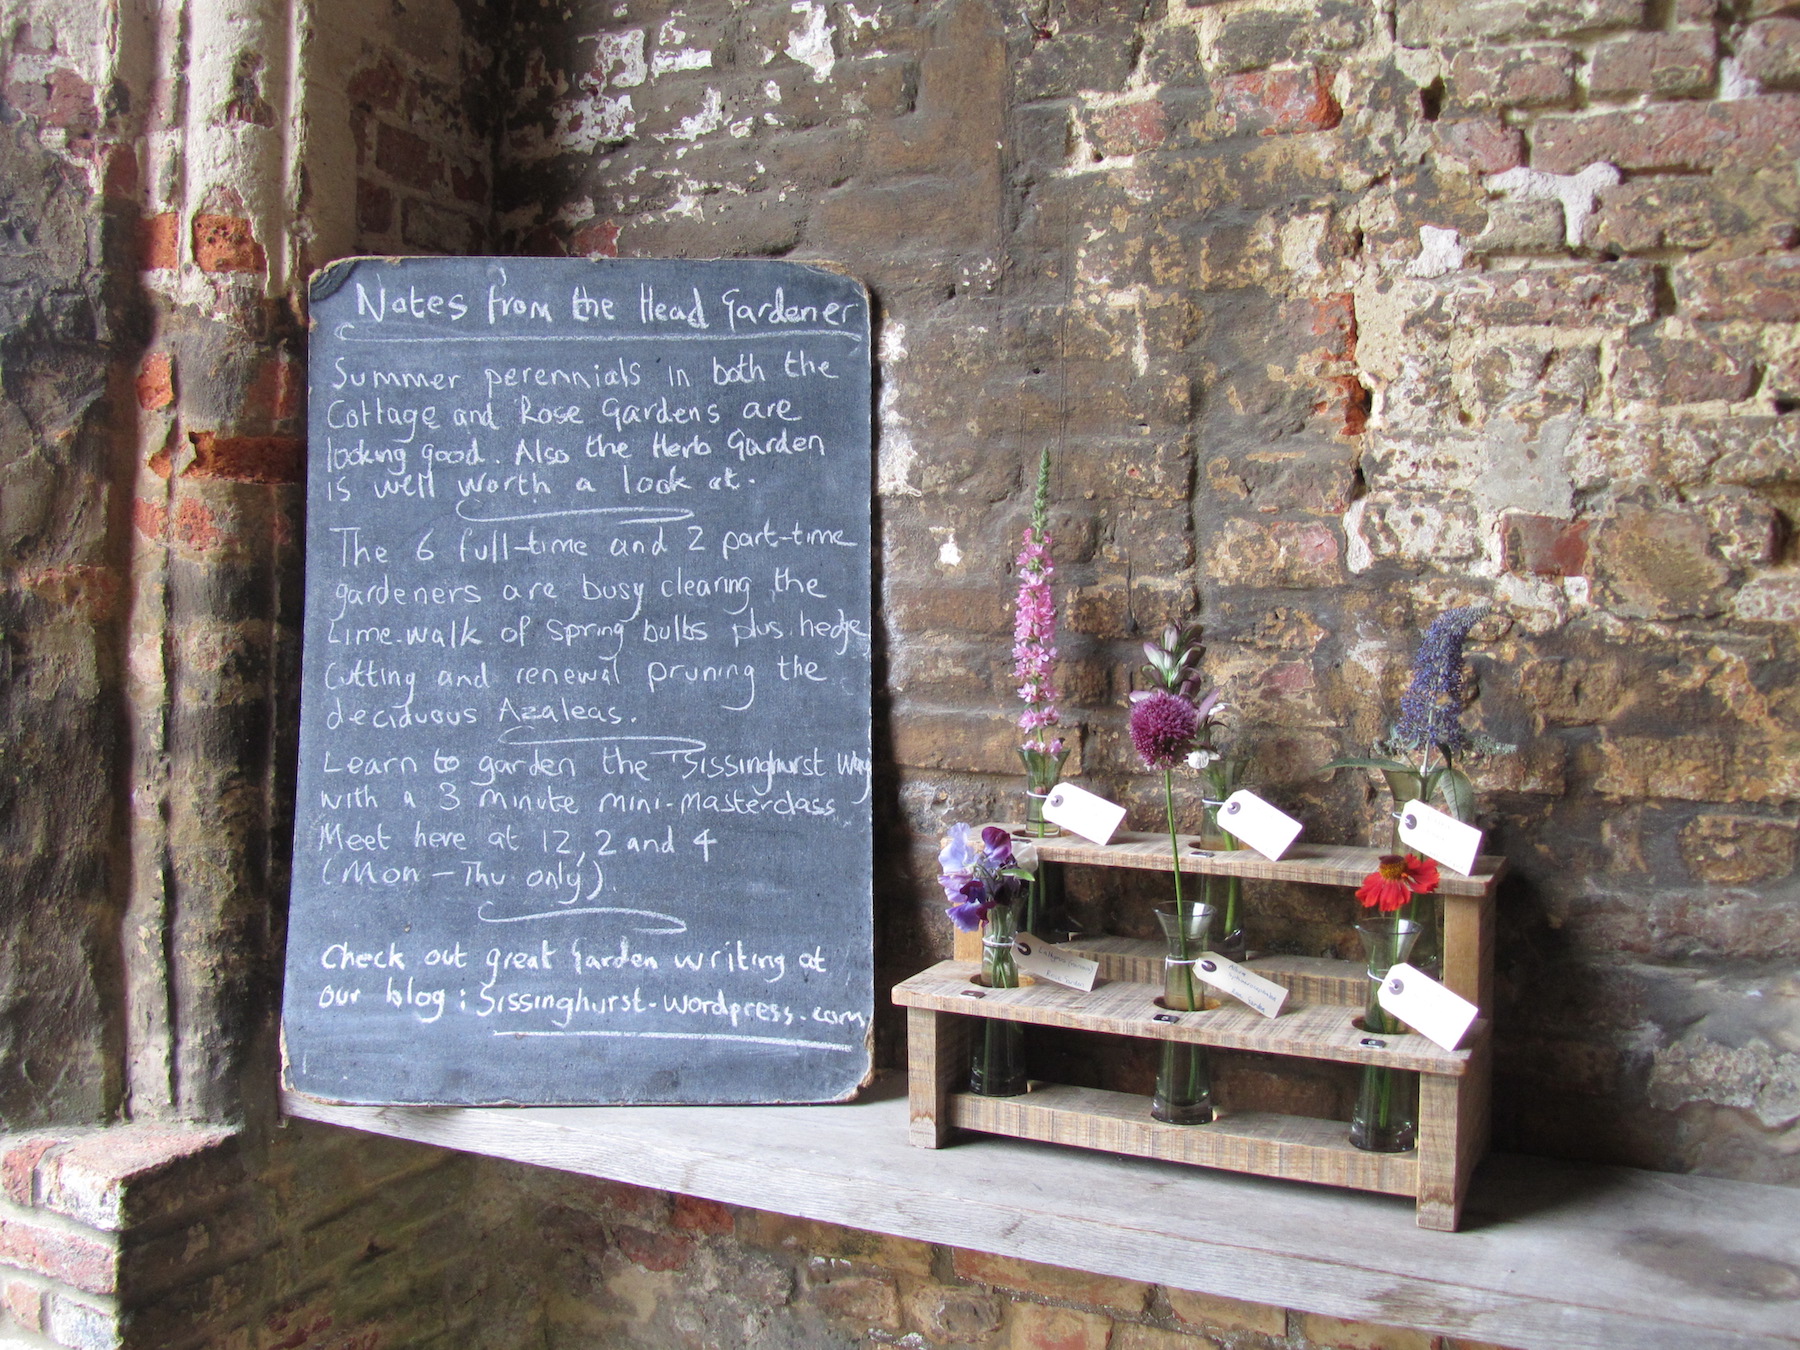 Notes from the Head Gardener
Summer perennials in both the
Cottage and Rose Gardens are
looking good. Also the Herb Garden
is well worth a look at.
The 6 full-time and 2 part-time
gardeners are busy clearing the
Lime-walk of spring bulbs plus hedge
cutting and renewal pruning the
deciduous Azaleas.
Learn to garden the 'Sissinghurst Way'
with a 3 minute mini-masterclass.
Meet here at 12, 2 and 4
(Mon - Thu only).
Check out great garden writing at
our blog: Sissinghurst-wordpress.com
Rose Garden